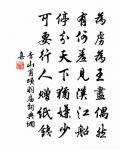 為虜為王盡偶然
有何羞見漢江船
停分天下猶嫌少
可要行人贈紙錢
李山甫項羽廟詞典